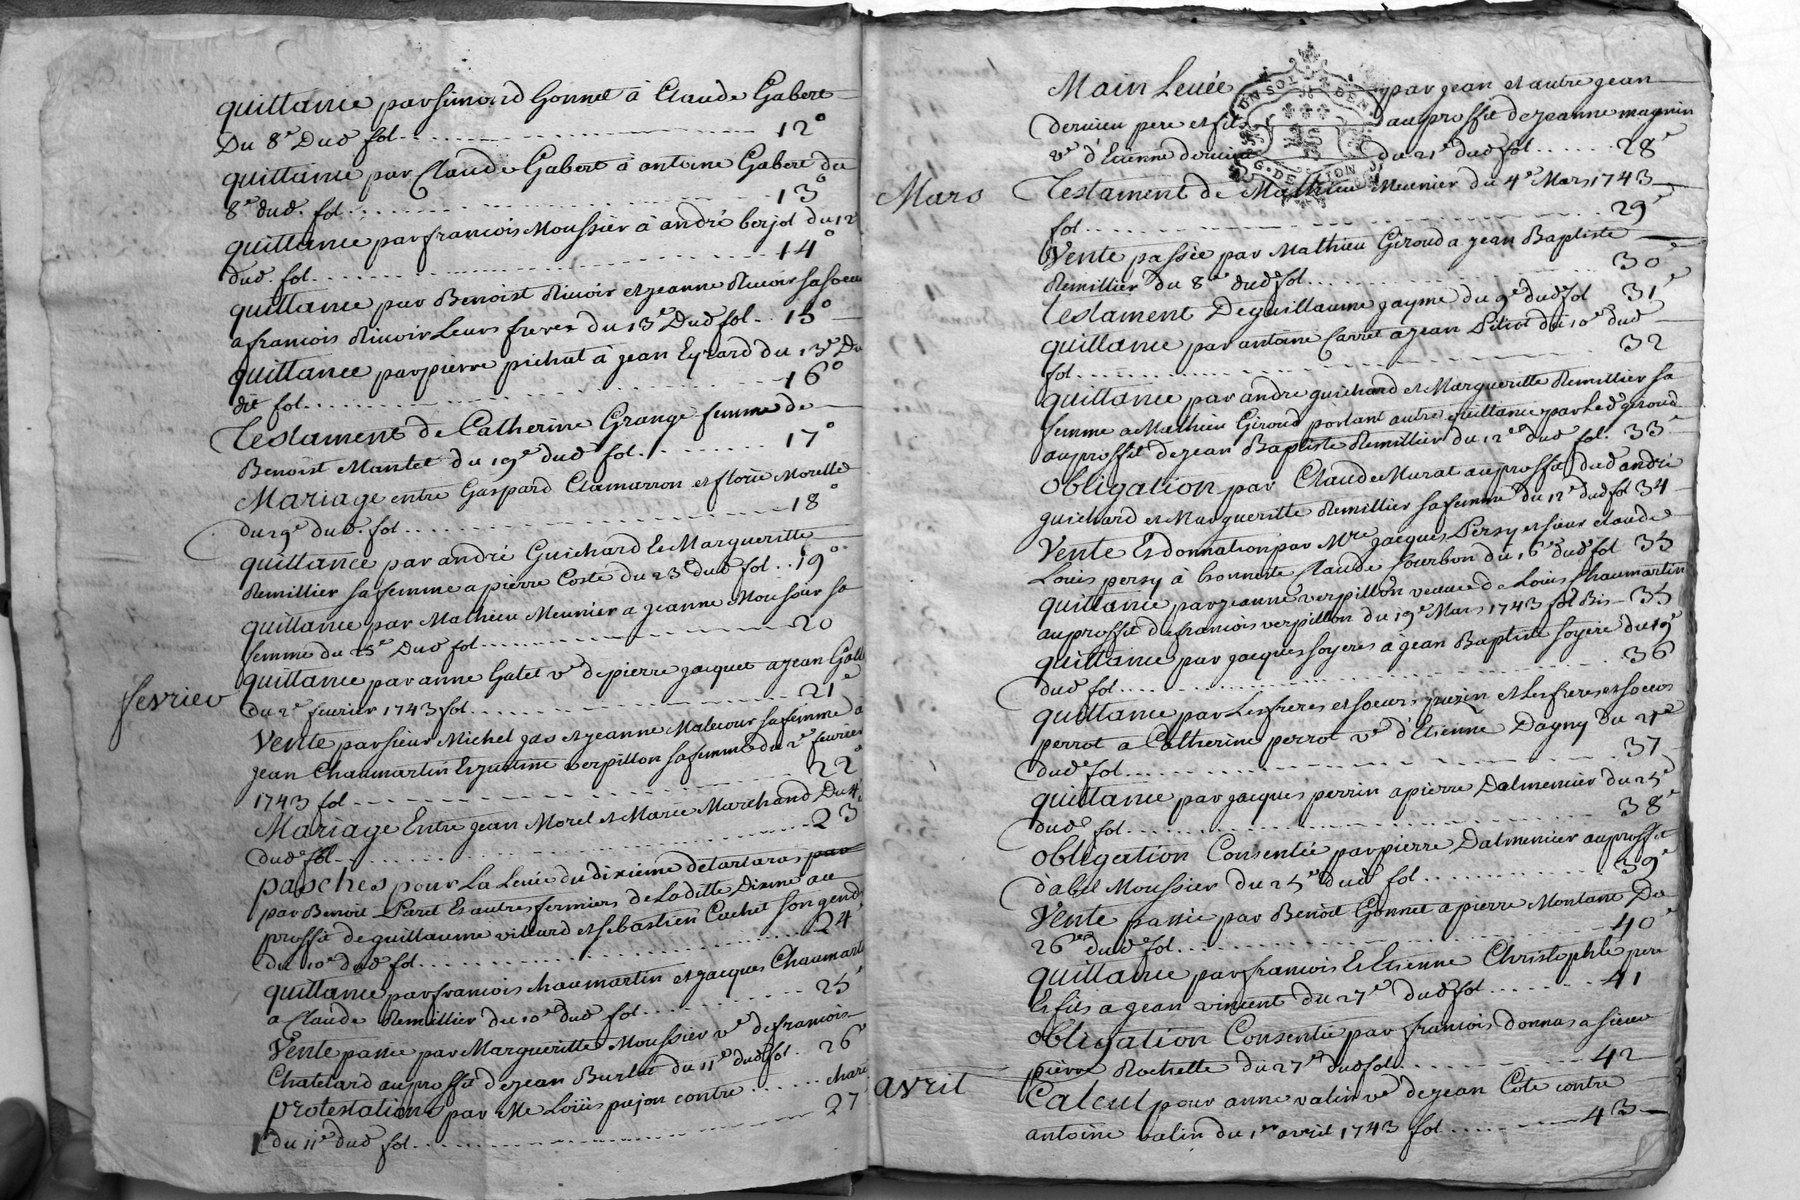 quittance par Simond Gonnet à Claude Gabert
Du 8e Dud fol. 12e
quittance par Claude Gabert à antoine Gabert du
8e dud. fol. 13e
quittance par francois Moussier à andré berjot du 12
dud. fol. 14e
quittance par Benoist Rivoir et jeanne Rivoir sa soeur
a francois Rivoir Leurs freres du 13e Dud fol. 15e
quittance par pierre pichat à jean Eyrard du 13e Du
dit fol. 16e
Testament de Catherine Grange femme de
Benoist Mantel du 19e dud fol. 17e
Mariage entre Gaspard Clamarron et florie Morelle
du 19e dud. fol. 18e
quittance par andré Guichard Et Margueritte
Remillier sa femme a pierre Coste du 23e dud fol. 19e
quittance par Mathieu Meunier a jeanne Moussier sa
femme du 25e Dud fol. 20
quittance par anne Gatet ve de pierre jacquet a jean
fevrier
du 2e fevrier 1743 fol. 21e
Vente par sieur Michel gas et jeanne Malecour sa femme a
jean Chaumartin Et justine verpillon sa femme du 2e fevrier
1743 fol. 22e
Mariage Entre jean Morel et Marie Marchand Du 4e
dud fol. 23
pasches pour La Levée du dixieme de tartaras par
par Benoit Paret Et autres fermiers de Laditte Dixme au
proffit de guillaume villard et sébastien Cachet son gendre
du 10e dud fol. 24
quittance par francois chaumartin et jacques Chaumartin
a Claude Remillier du 10e dud fol. 25e
Vente passée par Margueritte Moussier ve de francois
Chatelard au proffit de jean Burlat du 11e dud fol. 26e
protestations par Me Loüis pujon contre
du 11e dud fol. 27
Main Levée par jean et autre jean
dervieu pere et fils au proffit de jeanne magnin
ve d'Etienne dervieu du 21e dud fol. 28e
Mars
Testament de Mathieu Meunier du 4e Mars 1743
fol. 29e
Vente passée par Mathieu Giroud a jean Baptiste
Remillier du 8e dud fol. 30e
Testament De guillaume jayme du 9e dud fol 31e
quittance par antoine Carret a jean Pitiot du 10e dud
fol. 32
quittance par andre guichard et Margueritte Remillier sa
femme a Mathieu Giroud portant autre quittance par Led giroud
au proffit de jean Baptiste Remillier du 12e dud fol. 33e
Obligation par Claude Murat au proffit dud andré
guichard et Margueritte Remillier sa femme du 12e dud fol 34
Vente Et donnation par Mre jacques Persy et sieur claude
Louis persy à honneste Claude Sourbon du 16e dud fol 35
quittance par jeanne verpillon veuve de Louis Chaumartin
au proffit de francois verpillon du 19e Mars 1743 fol Bis 35
quittance par jacques soyeres à jean Baptiste soyere du 19e
dud fol. 36
quittance par Les freres et soeurs et Les freres et soeurs
perrot a Catherine perrot ve d'Etienne Dagny du 21e
dud fol. 37
quittance par jacques perrin a pierre Dalmencier du 25e
dud fol. 38e
Obligation Consentie par pierre Dalmencier au proffit
d'abel Moussier du 25e dud fol. 39e
Vente passée par Benoit Gonnet a pierre Montant Du
26e dud fol. 40e
quittance par francois Et Etienne Christophle pere
Et fils a jean vincent du 27e dud fol. 41
Obligation Consentie par francois donnas a sieur
pierre Rochette du 27e dud fol. 42
avril
Calcul pour anne valin ve de jean Cote contre
antoine valin du 1er avril 1743 fol. 43